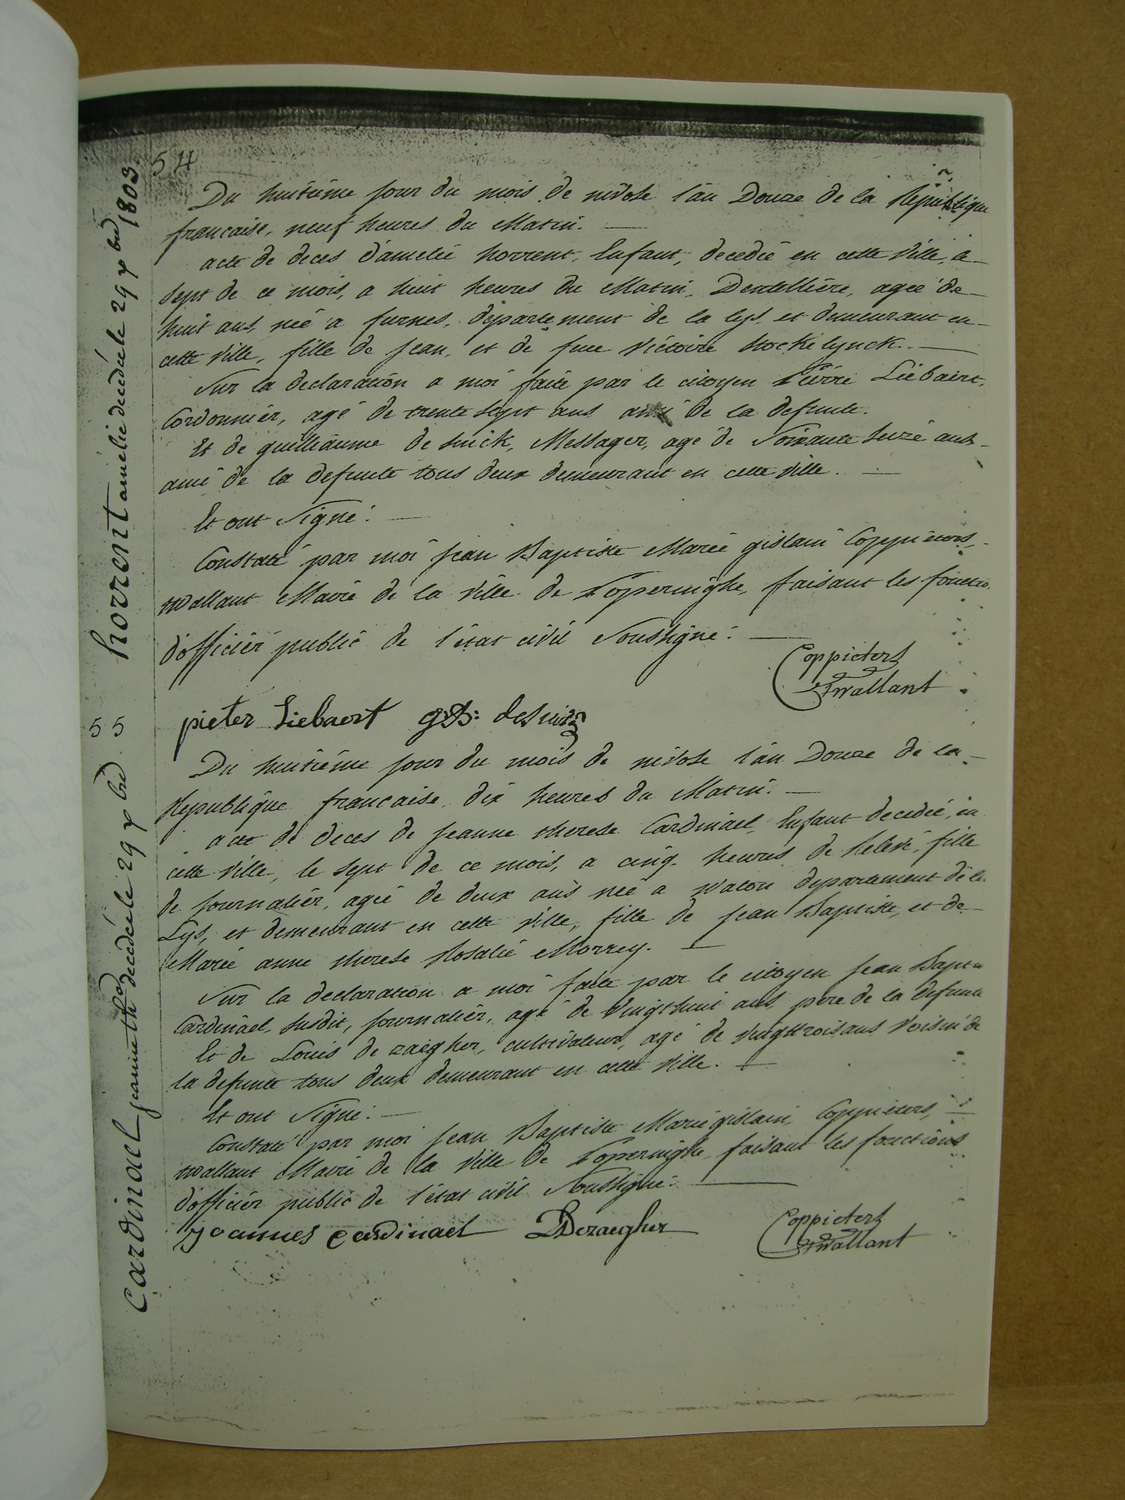 54
Du huitiéme jour du mois de nivose l'an Douze de la Republique
francaise, neuf heures du Matin.
acte de deces d'amelié horrent, Enfant, decedée en cette Ville, a
sept de ce mois, a huit heures du Matin, Dentelliére, agée de
huit ans, née a furnes, département de la lys et demeurant en
cette Ville, fille de jean, et de feue Victoire
Sur la declaration a moi faite par le citoyen Pierre Liebaert,
Cordonniér, agé de trente sept ans ami de la defunte.
Et de guilliaume de Smick, Messager, agé de Soixante Seize ans
ami de la defunte tous deux demeurant en cette ville.
Et ont Signé.
Constaté par moi jean Baptiste Marie gislain Coppieters,
wallant Maire de la Ville de Poperinghe, faisant les fonctio
d'officiér public de l'état civil Soussigné.
Coppieters
wallant
pieter Liebaert
horrent amélie décédée le 29 xbre 1803.
55
Du huitiéme jour du mois de nivose l'an Douze de la
Republique francaise, dix heures du Matin.
acte de déces de jeanne therese Cardinael, Enfant decedée, en
cette Ville, le sept de ce mois, a cinq heures de fille
de journaliér, agée de deux ans née a watou departement de la
Lys, et demeurant en cette Ville, fille de jean Baptiste, et de
Marie anne therese Rosalie Morrey.
Sur la declaration a moi faite par le citoyen jean Bapte
Cardinael, susdit, journaliér, agé de Vingthuit ans pere de la defunte
Et de Louis de zaegher, cultivateur, agé de vingttrois ans Voisin de
la defunte tous deux demeurant en cette Ville.
Et ont Signé.
Constaté par moi jean Baptiste Marie gislain Coppieters,
wallant Maire de la Ville de Poperinghe faisant les fonctions
d'officiér public de l'état civil Soussigné.
joannes cardinael LDezaegher
Coppieters
wallant
Cardinael jeanne thse décédée le 29 xbre